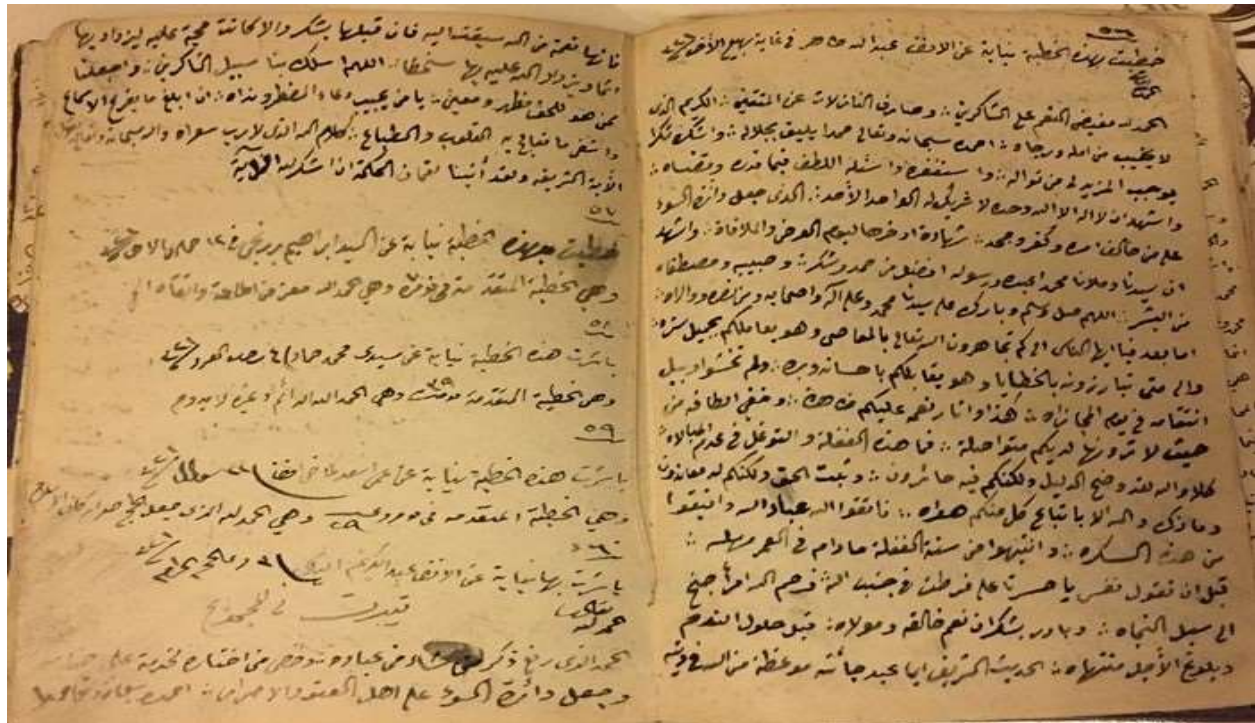 ٥٦
خطبت بهذه الخطبة نيابة عن الافندي عبد الله طاهر في غاية ربيع الآخر
الحمد لله مفيض النعم على الشاكرين وصارف النازلات عن المتقين الكريم الذي
لا يخيب من امله ورجاه احمده سبحانه وتعالى حمدا يليق بجلاله واشكره شكرا
يوجب المزيد لي من نواله واستغفره واسئله اللطف فيما قدره وقضاه
واشهد ان لا اله الا الله وحده لا شريك له الواحد الأحد الذي جعل دائرة السوء
على من خالف امره وكفر وجحد شهادة ادخرها ليوم العرض والملاقاة واشهد
ان سيدنا ومولانا محمدا عبده ورسوله افضل من حمد وشكر وحبيبه ومصطفاه
من البشر اللهم صل وسلم وبارك على سيدنا محمد وعلى آله واصحابه ومن نصره ووالاه
اما بعد فيا ايها الناس الى كم تجاهرون الله تعالى بالمعاصي وهو يعاملكم بجميل ستره
والى متى تبارزونه بالخطايا وهو يقابلكم باحسانه وبره ولم تخشوا وبيل
انتقامه في يوم المجازاه هذا واثار نعمه عليكم وخفي الطافه من
حيث لا ترونها لديكم متواصلة فما هذه الغفلة والتوغل في عدم المبالاه
كلا والله لقد وضح الدليل ولكنكم فيه حائرون وثبت الحق ولكنكم له معاندون
وما ذلك والله الا باتباع كل منكم هواه فاتقوا الله عباد الله وافيقوا
من هذه السكره وانتبهوا من سنة الغفلة ما دام في العمر مهله
قبل ان تقول نفس يا حسرتا على ما فرطت في جنب الله فرحم الله امرأ جنح
الى سبيل النجاه وبادر بشكران نعم خالقه ومولاه قبل حلول الندم
وبلوغ الأجل منتهاه الحديث الشريف ايما عبد جائته موعظة من الله في دينه
فانها نعمة من الله سيقت اليه فان قبلها بشكر والا كانت حجة عليه ليزداد بها
اثما ويزداد الله عليه بها سخطا اللهم اسلك بنا سبيل الشاكرين واجعلنا
ممن هو للحق مظهر ومعين يا من يجيب دعاء المضطر ونداه ان ابلغ ما يقرع الاسماع
كلام الله الذي لا رب سواه والله سبحانه
الآية الشريفة ولقد آتينا لقمان الحكمة ان اشكر لله الآية
٥٧
خطبت بهذه الخطبة نيابة عن السيد ابراهيم في ١٢
وهي الخطبة المتقدمة في نومرة وهي الحمد لله معز من اطاعه واتقاه
٥٨
باشرت هذه الخطبة نيابة عن سيدي محمد
وهي الخطبة المتقدمة ٣٩ وهي الحمد لله الدائم
٥٩
باشرت هذه الخطبة نيابة عن
وهي الخطبة المتقدمة في نومرو وهي الحمد لله الذي جعل الحج
٦٠
باشرت بها نيابة عن الافندي عبد
قيدت في
الحمد لله
الحمد لله الذي رفع ذكر من شاء من عباده من اختاره لخدمته على
وجعل دائرة السوء على اهل العتو والاصرار احمده سبحانه وتعالى